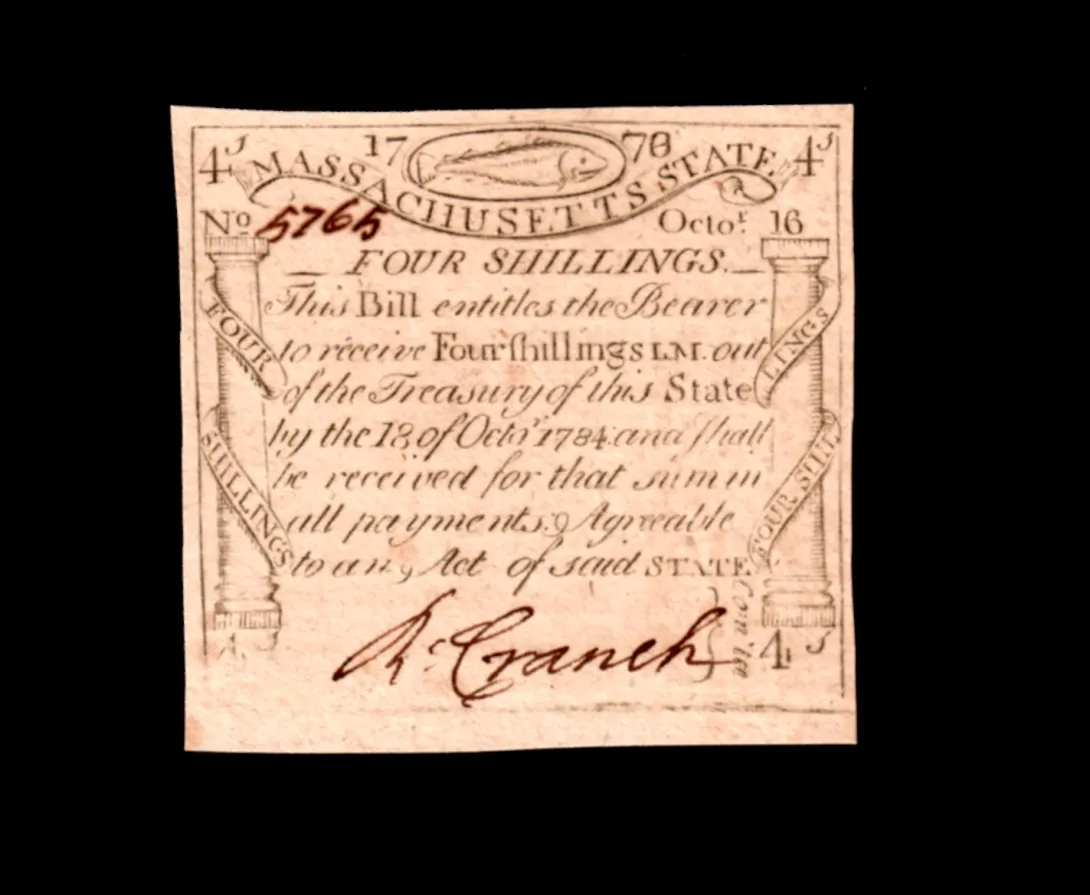 17 78
4s MASSACHUSETTS STATE 4s
No 5765 Octor. 16
FOUR SHILLINGS.
This Bill entitles the Bearer
to receive Four shillings L.M. out
of the Treasury of this State
by the 18, of Octr. 1784. and shall
be received for that sum in
all payments, Agreeable
to an, Act of said STATE
Rd Cranch
Com'tee
4s 4s
FOUR
SHILLINGS
FOUR SHIL
LINGS